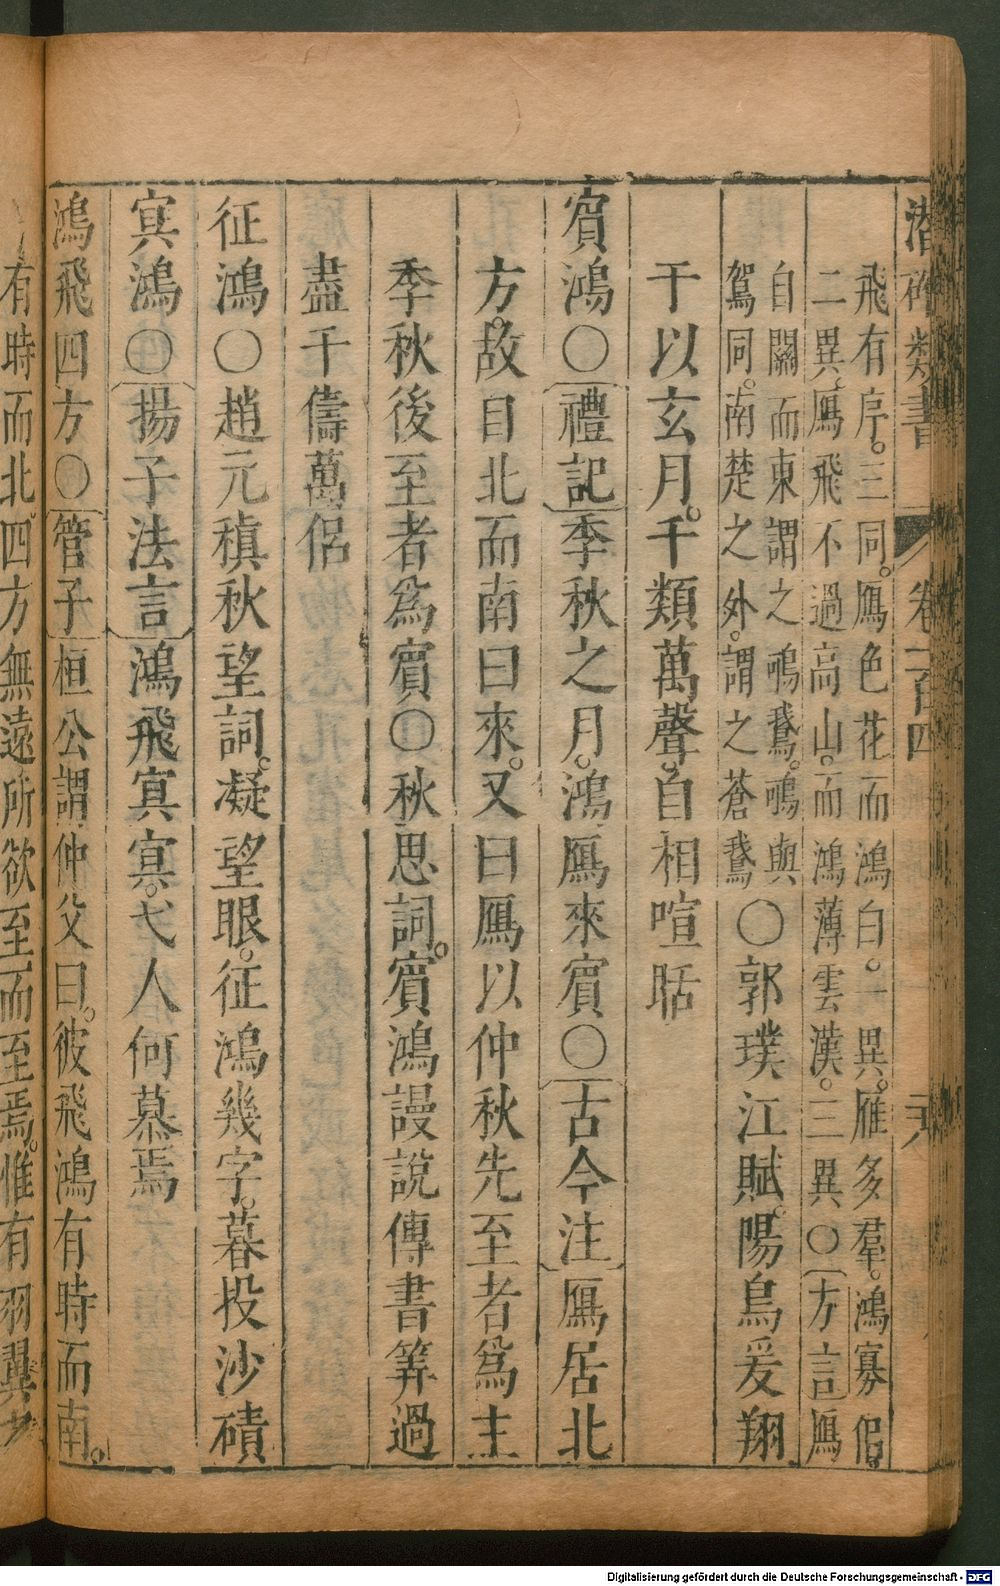 潛確類書　卷一百四　二六
飛有序。三同。鴈色花而鴻白。一異。雁多羣。鴻寡侶。
二異。鴈飛不過高山。而鴻薄雲漢。三異〇方言鴈
自關而東謂之鳴鵞。鳴與
駕同。南楚之外。謂之蒼鵞〇郭璞江賦。陽鳥爰翔
于以玄月。千類萬聲。自相喧聒
賓鴻〇禮記季秋之月。鴻鴈來賓〇古今注鴈居北
方。故自北而南曰來。又曰鴈以仲秋先至者爲主
季秋後至者爲賓〇秋思詞。賓鴻謾說傳書筭過
盡千儔萬侶
征鴻〇趙元稹秋望詞。凝望眼。征鴻幾字。暮投沙磧
㝠鴻〇揚子法言鴻飛㝠㝠。弋人何慕焉
鴻飛四方〇管子桓公謂仲父曰。彼飛鴻有時而南。
有時而北。四方無遠所欲至而至焉。惟有羽翼
Digitalisierung gefördert durch die Deutsche Forschungsgemeinschaft - DFG